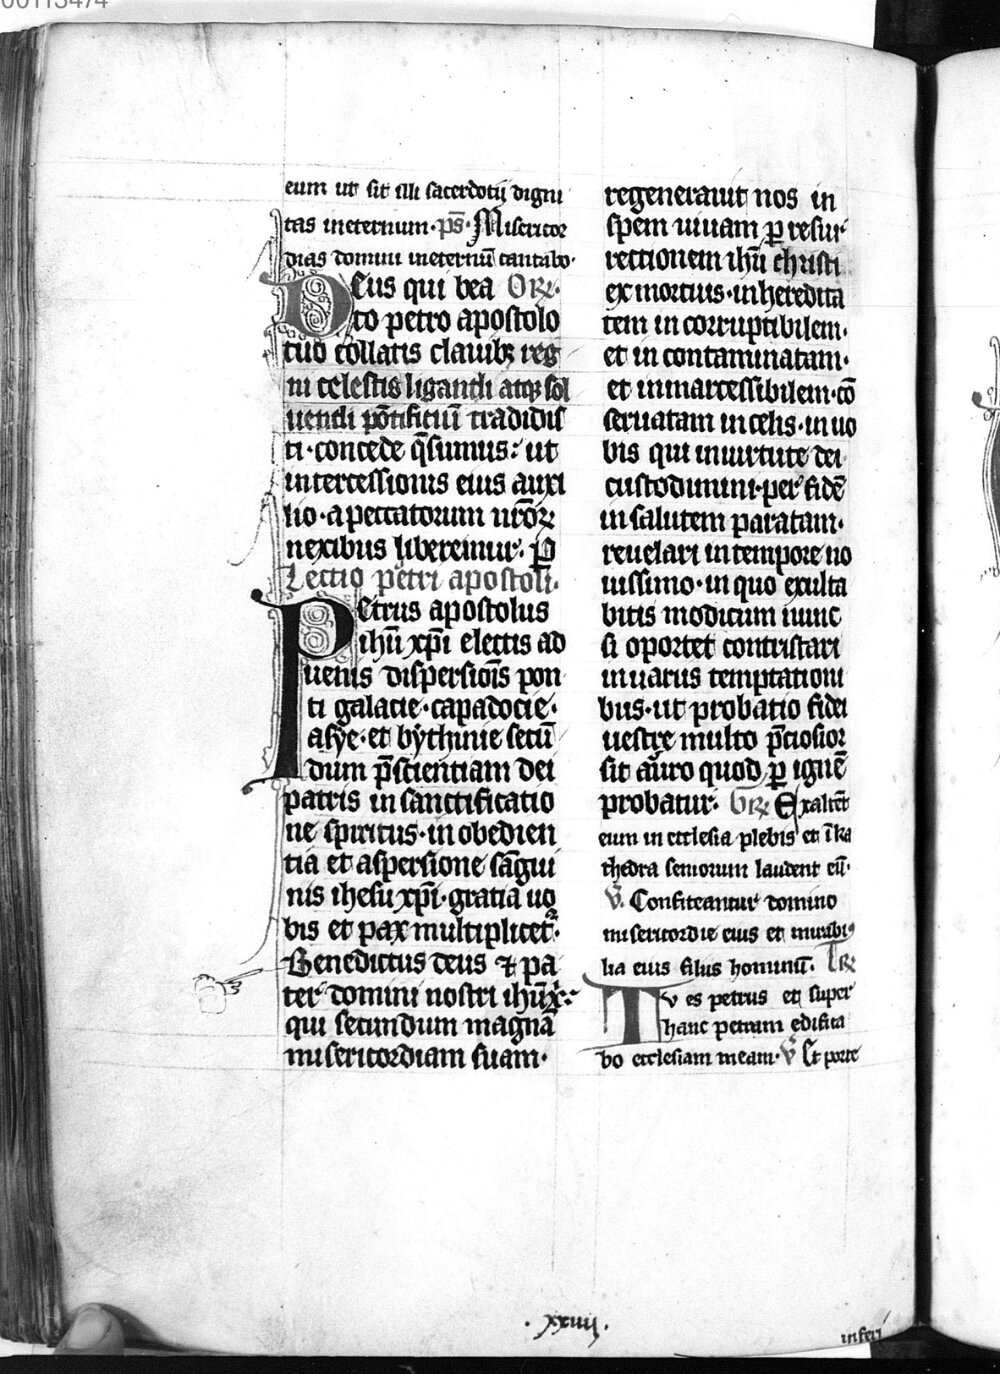 00113474
eum ut sit illi sacerdotij digni
tas ineternum·ps̄·Misericor
dias domini ineternū cantabo·
Deus qui bea Or̄·
to petro apostolo
tuo collatis clauibꝫ reg
ni celestis ligandi atqꝫ sol
uendi pōtificiū tradidis
ti·concede q̄sumus: ut
intercessionis eius auxi
lio·a peccatorum nr̄oꝝ
nexibus liberemur· ꝑ
Lectio petri apostoli·
Petrus apostolus
ihū xp̄i electis ad
uenis dispersiōis pon
ti galacie·capadocie·
asye·et bythinie secū
dum p̄scientiam dei
patris in sanctificatio
ne spiritus·in obedien
tia et aspersione sāgui
nis ihesu xp̄i·gratia uo
bis et pax multiplicet᷑·
Benedictus deus ⁊ pa
ter domini nostri ihū x̄·
qui secundum magnā
misericordiam suam·
regenerauit nos in
spem uiuam ꝑ resur
rectionem ihū christi
ex mortuis·inheredita
tem in corruptibilem·
et in contaminatam·
et inmarcessibilem·cō
seruatam in celis·in uo
bis qui inuirtute dei
custodimini·per fidē
in salutem paratam·
reuelari in tempore no
uissimo·in quo exulta
bitis modicum nunc
si oportet contristari
in uariis temptationi
bus·ut probatio fidei
uestre multo p̄ciosior
sit auro quod ꝑ ignē
probatur· Gr̄ Exaltēt
eum in ecclesia plebis et ī ka
thedra seniorum laudent eū·
V̄· Confiteantur domino
misericordie eius et mirabi
lia eius filiis hominū· Tr̄
Tv es petrus et super
hanc petram edifica
bo ecclesiam meam·V̄ Et porte
·xxiiij·
inferi